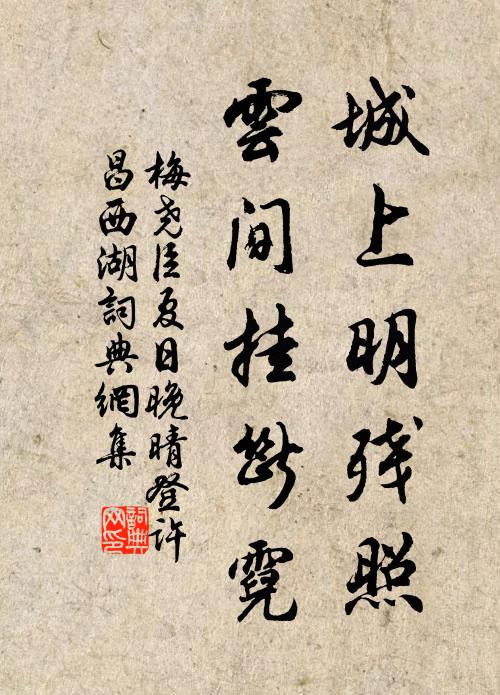 城上明残照
雲间挂断霓
梅尧臣夏日晚晴登许
昌西湖詞典網集
詞典
网印